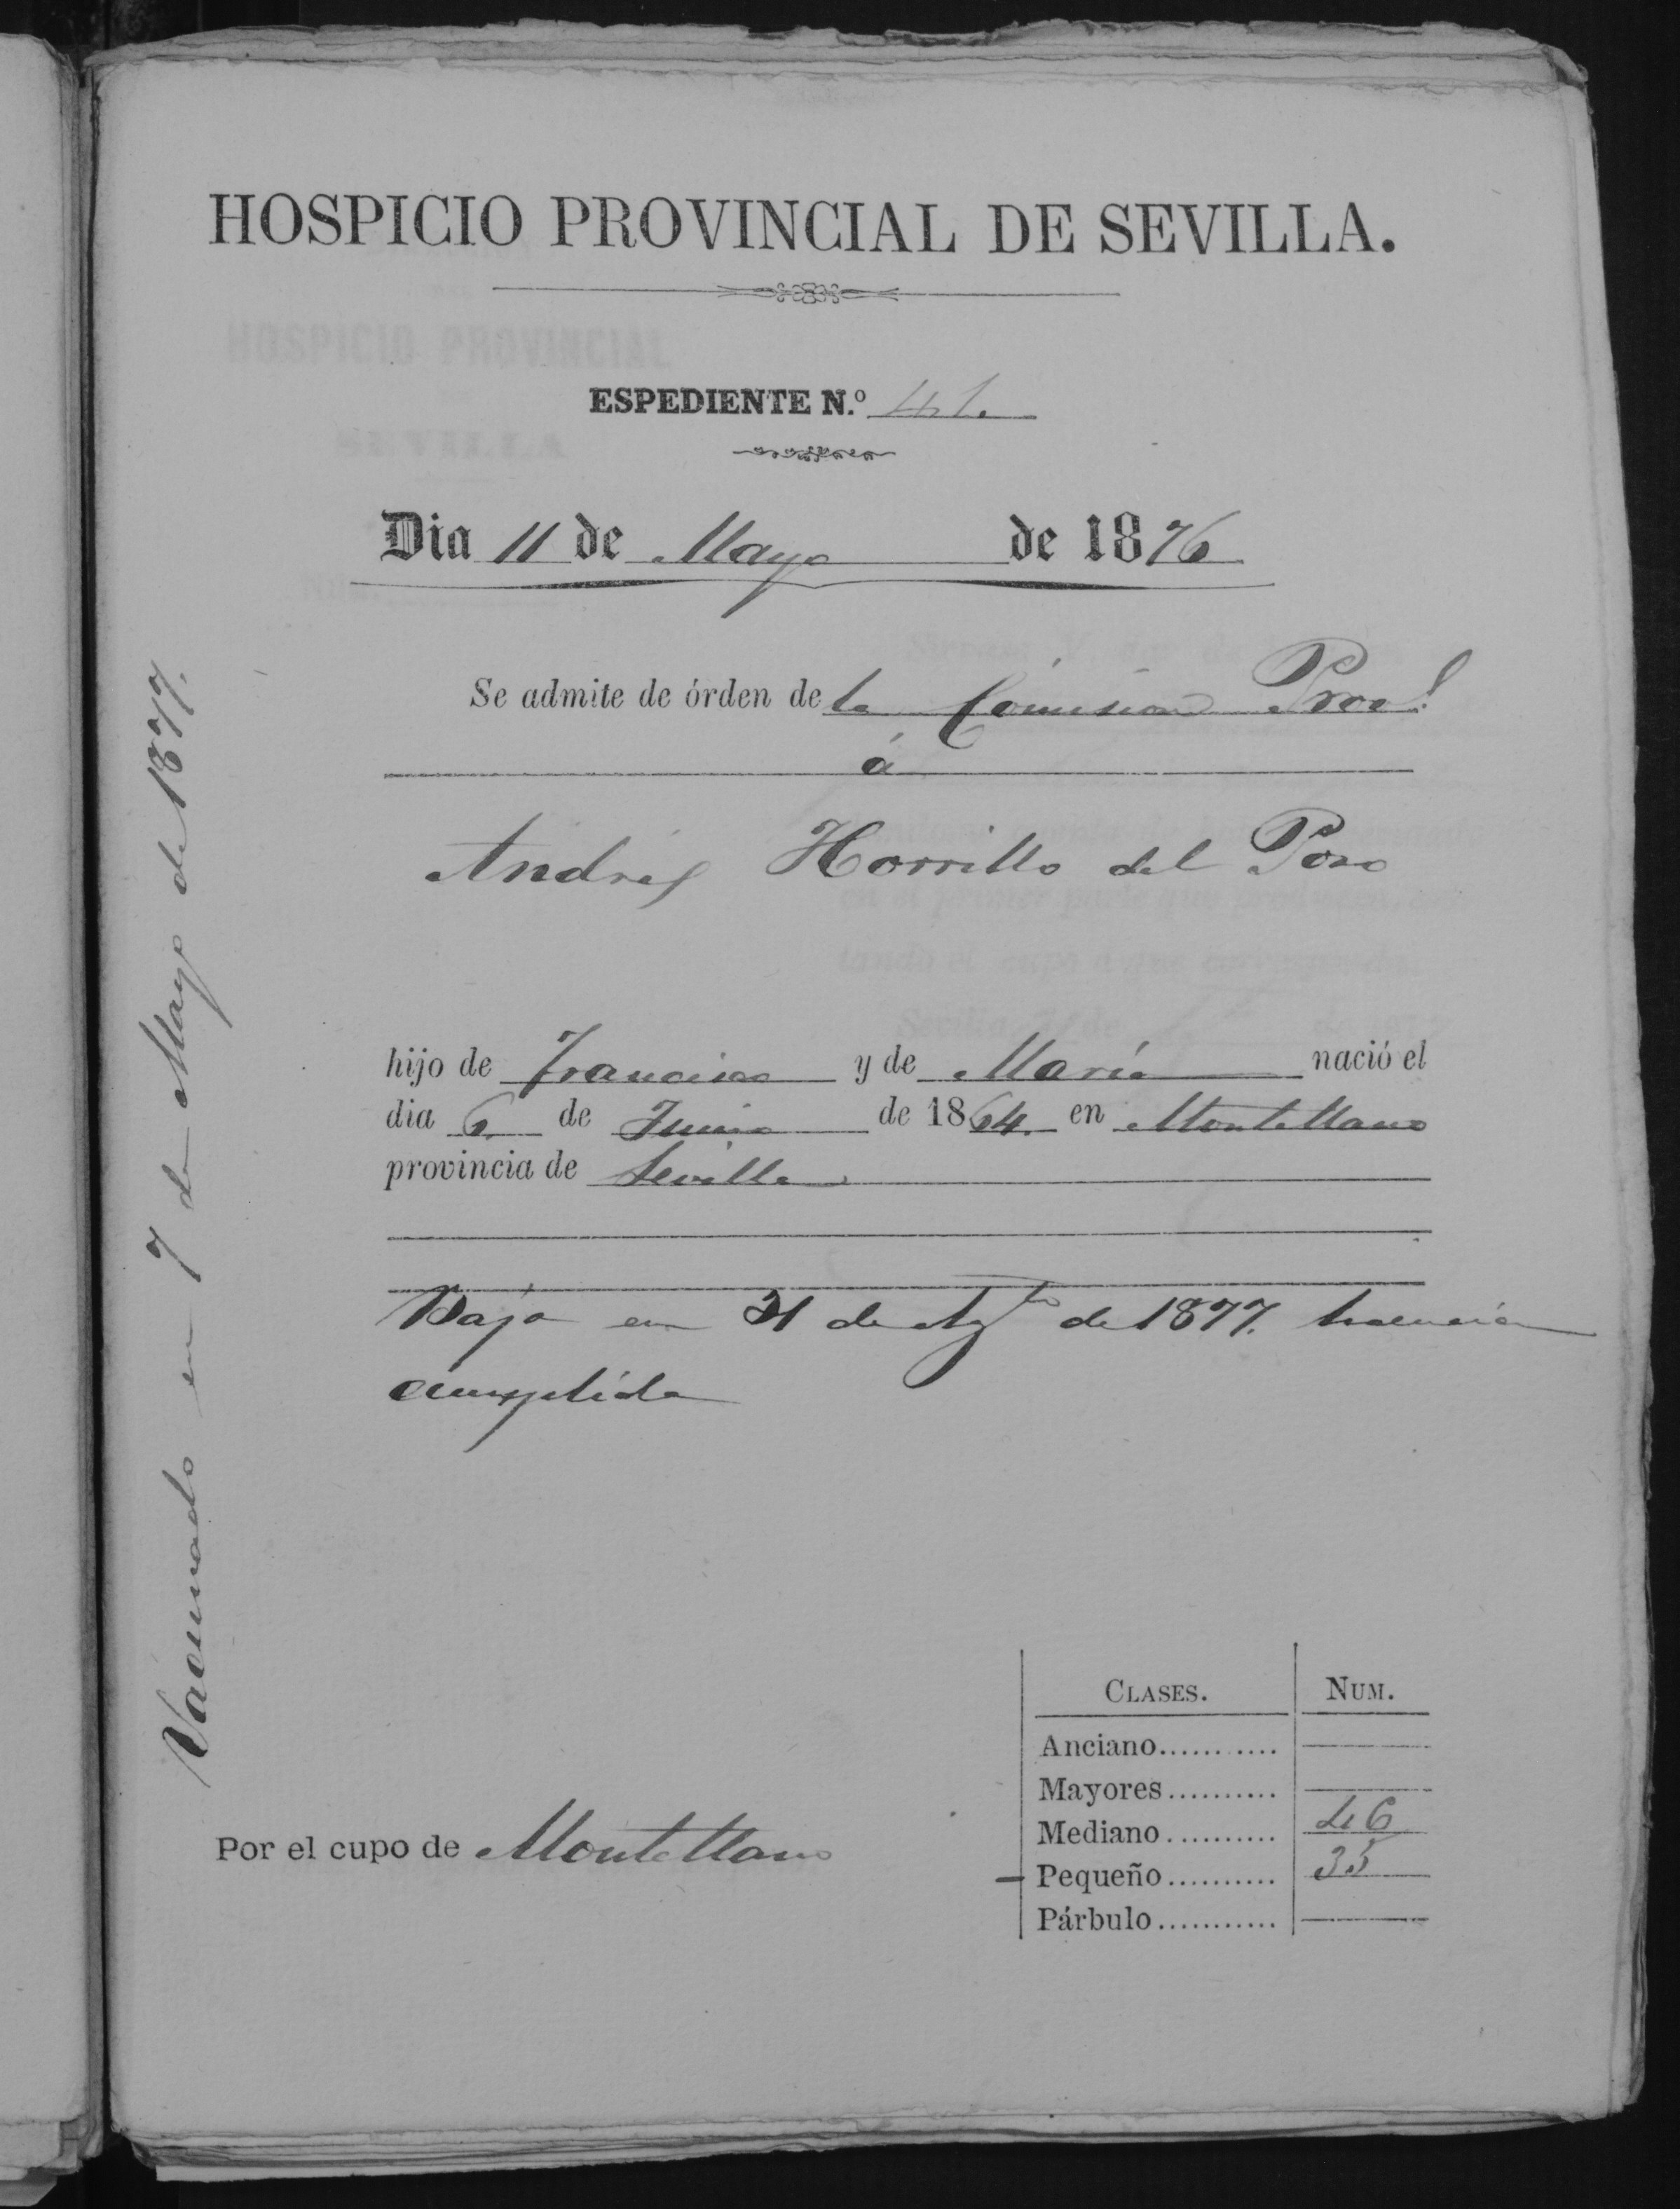 HOSPICIO PROVINCIAL DE SEVILLA.
ESPEDIENTE N.º 41.
Dia 11 de Mayo de 1876
Se admite de órden de la Comision Prov.l
á
Andrés Horrillo del Pozo
hijo de Francisco y de María nació el
dia 6 de Junio de 1864. en Montellano
provincia de Sevilla
Baja en 31 de Agto de 1877. licencia
cumplida
Vacunado en 7 de Mayo de 1877.
CLASES. NUM.
Anciano...........
Mayores..........
Mediano.......... 46
Pequeño.......... 35
Párbulo...........
Por el cupo de Montellano